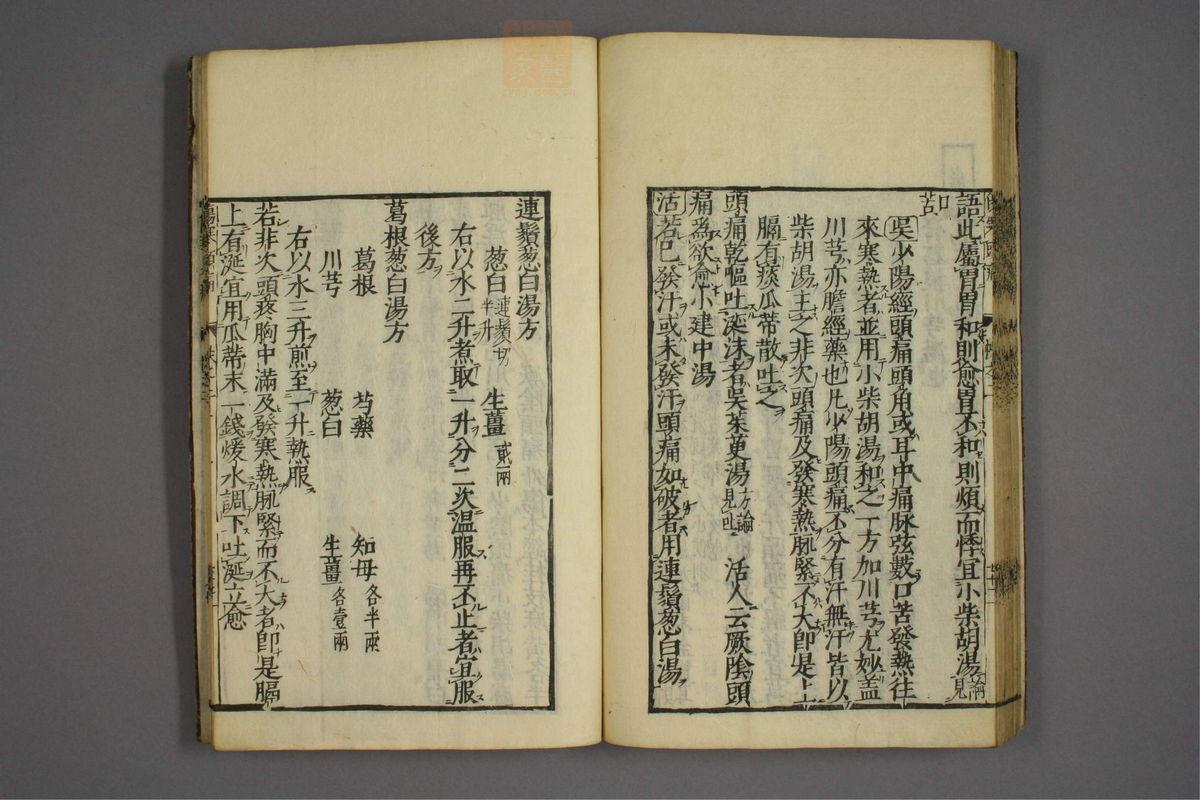 語此屬胃胃和則愈胃不和則煩而悸宜小柴胡湯見兩
知
吳少陽經頭痛頭角或耳中痛脉弦數口苦發熱往
來寒熱者並用小柴胡湯和之一方加川芎尤妙蓋
川芎亦膽經藥也凡少陽頭痛不分有汗無汗皆以
柴胡湯主之非次頭痛及發寒熱脉緊不大即是上
膈有痰瓜蒂散吐之
頭痛乾嘔吐涎沫者吳茱萸湯方論見吐 活人云厥陰頭
痛為欲愈小建中湯
活若已發汗或未發汗頭痛如破者用連鬚葱白湯
連鬚葱白湯方
葱白連鬚切半升 生薑貳兩
右以水二升煮取一升分二次温服再不止者宜服
後方
葛根葱白湯方
葛根 芍藥 知母各半兩
川芎 葱白 生薑各壹兩
右以水三升煎至一升熱服
若非次頭疼胸中滿及發寒熱脉緊而不大者即是膈
上有涎宜用瓜蒂末一錢煖水調下吐涎立愈